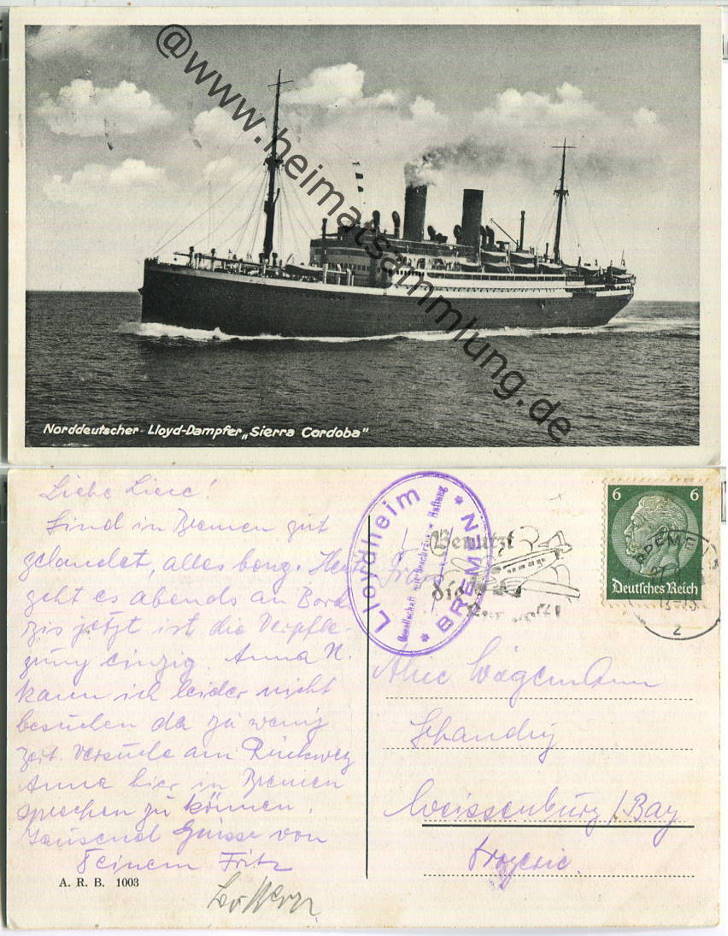 @www.heimatsammlung.de
Norddeutscher Lloyd-Dampfer „Sierra Cordoba"
Liebe
Sind in Bremen gut
gelandet, alles
geht es abends an Bord
bis jetzt ist die Verpfle-
gung einzig. Anna N.
kann ich leider nicht
besuchen da zu wenig
Zeit. Versuche am Rückweg
Anna hier in Bremen
sprechen zu können.
Tausend Grüsse von
Deinem Fritz
A. R. B. 1003
Lloydheim
Gesellschaft mit beschränkter Haftung
* BREMEN *
Benutzt
die
6 6
Deutsches Reich
BREMEN
2
Weissenburg / Bay
Drogerie